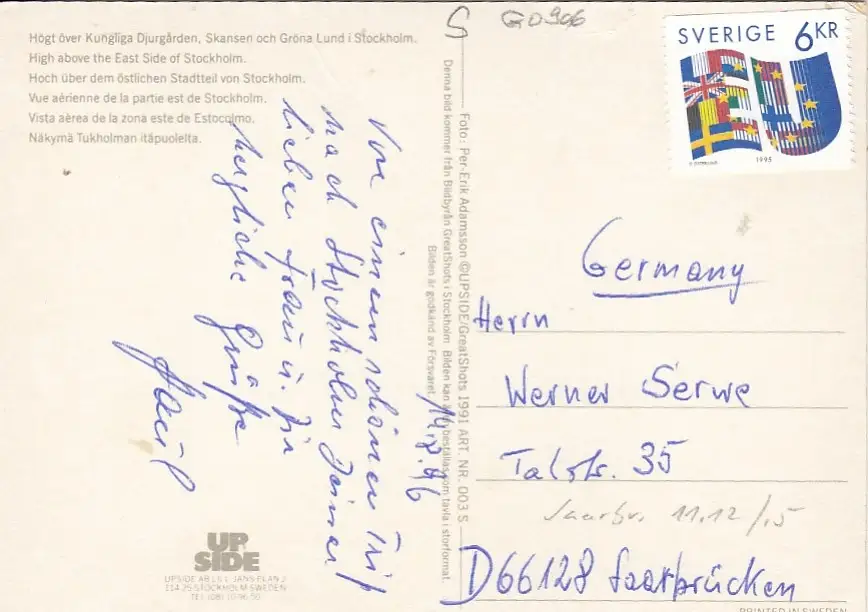 Högt över Kungliga Djurgården, Skansen och Gröna Lund i Stockholm.
High above the East Side of Stockholm.
Hoch über dem östlichen Stadtteil von Stockholm.
Vue aérienne de la partie est de Stockholm.
Vista aèrea de la zona este de Estocolmo.
Näkymä Tukholman itäpuolelta.
S
GD906
SVERIGE 6KR
EU
1995
14.8.96
Von einem schönen Trip
nach Stockholm Deiner
lieben Frau u. Dir
herzliche Grüße
Foto: Per-Erik Adamsson ©UPSIDE/GreatShots 1991 ART. NR. 003 S
Denna bild kommer från Bildbyrån GreatShots i Stockholm. Bilden kan beställas som tavla i storformat.
Bilden är godkänd av Försvaret.
Germany
Herrn
Werner Serwe
Talstr. 35
Saarbr. 11.12/.5
D66128 Saarbrücken
UP
SIDE
UPSIDE AB, S:T JANS PLAN 2
114 25 STOCKHOLM SWEDEN
TEL (08) 10 96 50
PRINTED IN SWEDEN